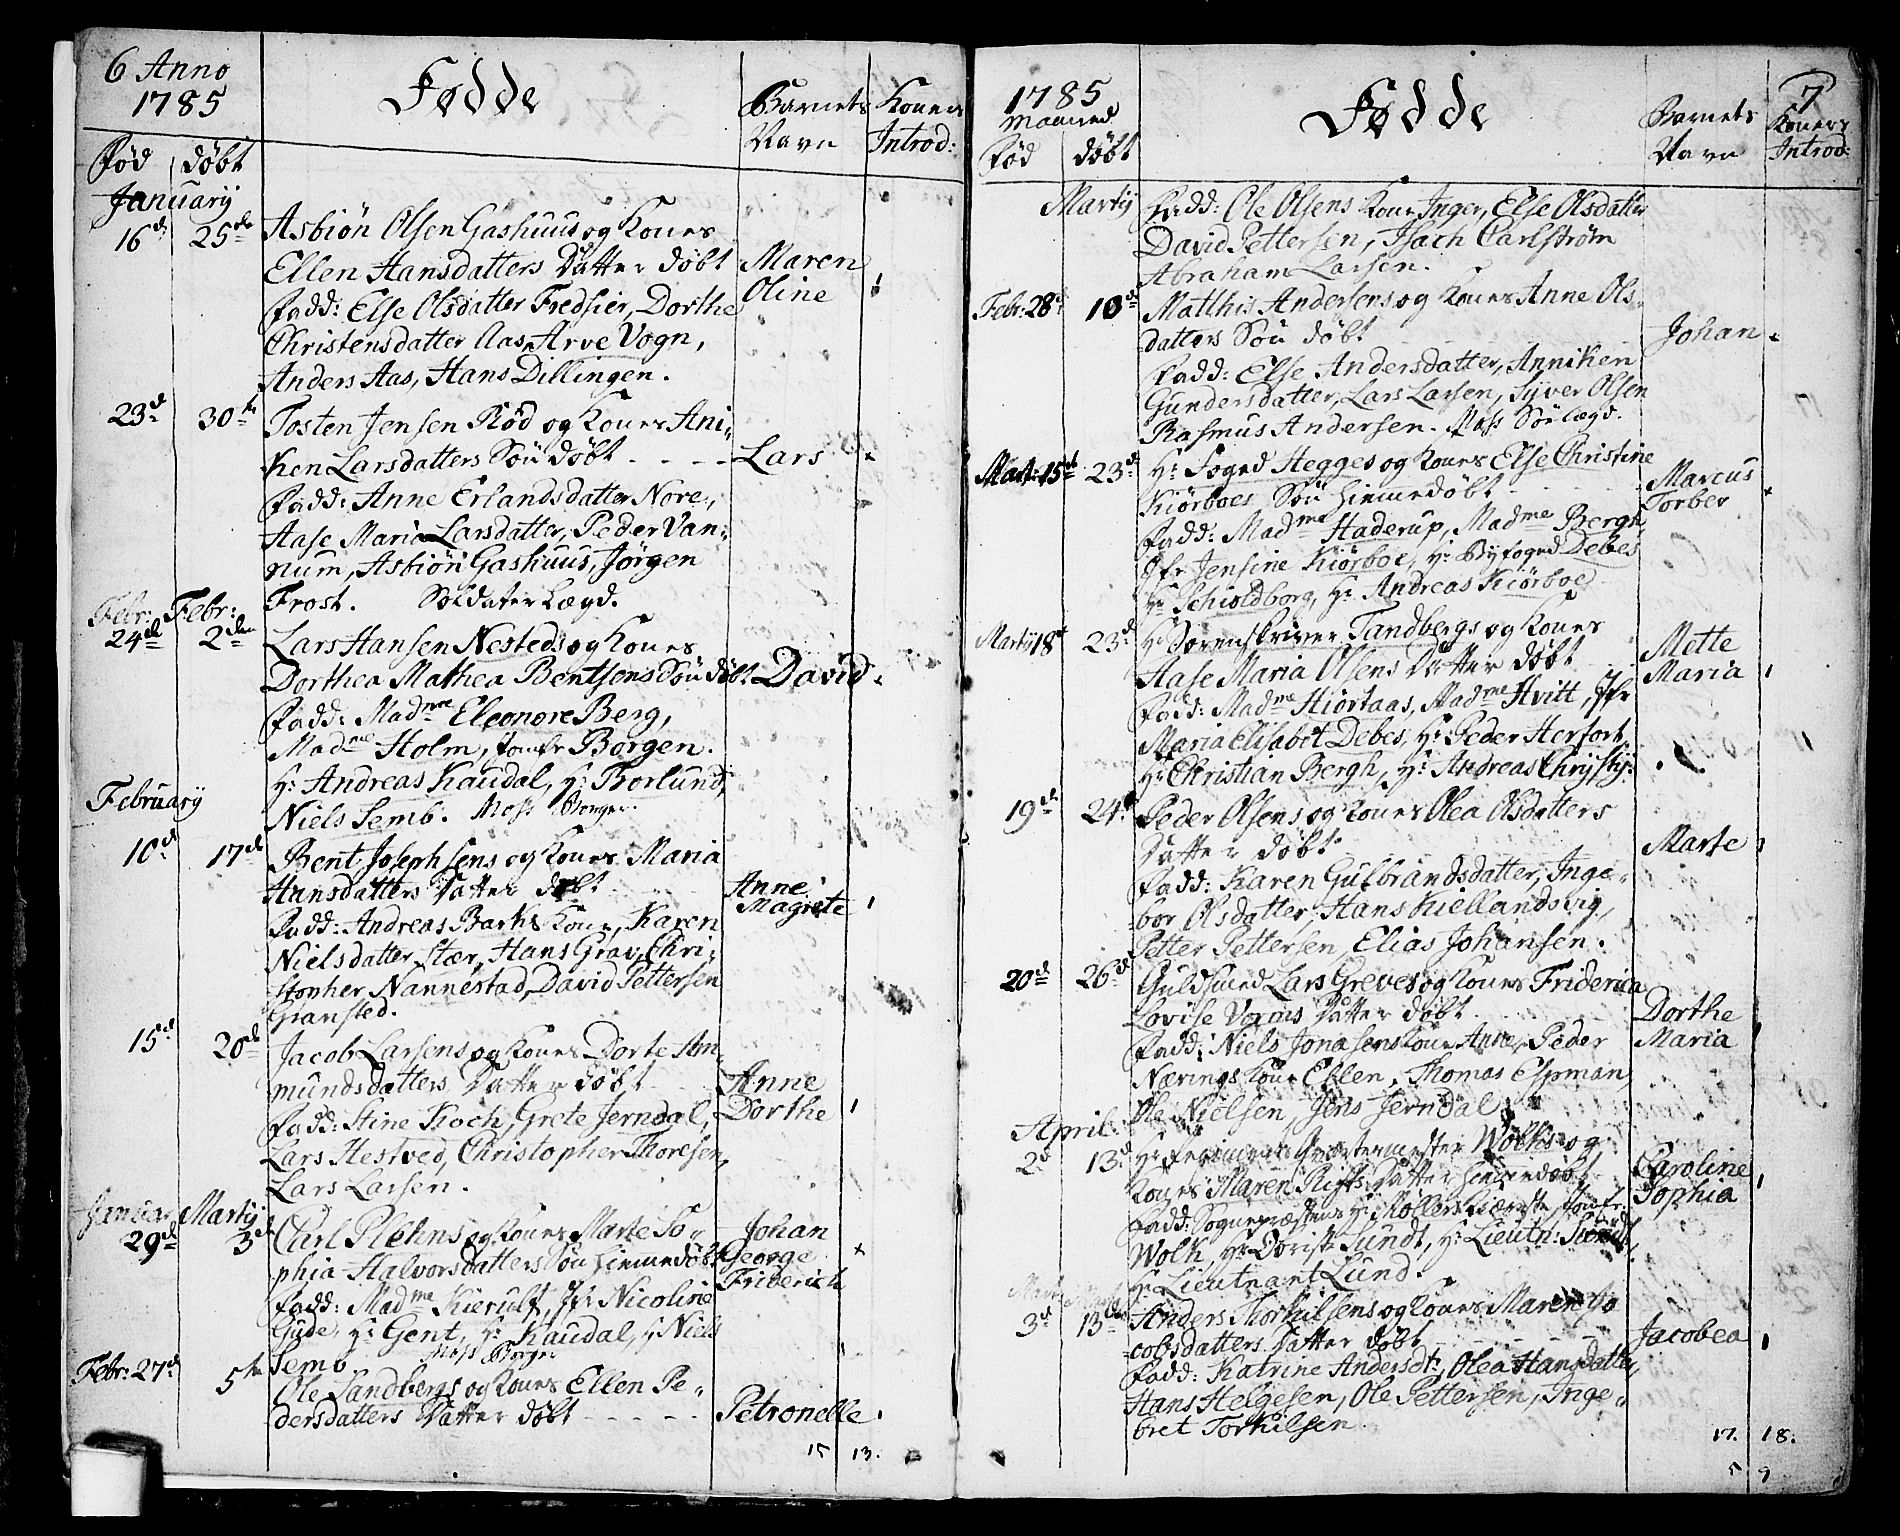 6 Anno
1785
Fødde
Barnets
Navn
Koners
Introd:
Fød døbt
January
16de 25de Asbiön Olsen Gashuus og Kones
Ellen Hansdatters Datter døbt Maren
Oline
Fadd: Else Olsdatter Fredsier, Dorthe
Christensdatter Aas, Arve Vogn,
Anders Aas, Hans Dillingen.
23de 30te Tosten Jensen Rød og Kones Ani-
ken Larsdatters Søn døbt - - - - Lars
Fadd: Anne Erlandsdatter Nore,
Aase Maria Larsdatter, Peder Van-
num, Asbiön Gashuus, Jörgen
Frost. Soldater Lægd.
Febr: Febr:
24de 2den Lars Hansen Nesteds og Kones
Dorthea Mathea Bentsens Søn døbt David
Fadd: Madme Eleonore Berg,
Madme Holm, Jomfr Borgen.
Hr Andreas Kaudal, Hr Thorlund,
Niels Semb. Moss Borger.
February
10de 17de Bent Josephsens og Kones Maria
Hansdatters Datter døbt Anne
Magrete
Fadd: Andreas Barks Kone, Karen
Nielsdatter Stær, Hans Grav, Chri-
stopher Nannestad, David Pettersen
Gransted.
15de 20de Jacob Larsens og Kones Dorte Am-
mundsdatters Datter døbt Anne
Dorthe
Fadd: Stine Koch, Grete Jerndal,
Lars Hestved, Christopher Thoresen,
Lars Larsen.
Januar Martij
29de 3de Carl Plehns og Kones Marte So-
phia Halvorsdatters Søn hiemmedøbt Johan
George
Friderich
Fadd: Madme Kierulf, Jfr Nicoline
Gude, Hr Gent, Hr Kaudal, Hr Niels
Semb. Moss Borger
Febr: 27de 5te Ole Sandbergs og Kones Ellen Pe-
dersdatters Datter døbt - - - - - Petronelle
15 13.
1785
Maaned
Fød døbt
Fødde
Barnets
Navn
7
Koners
Introd:
Martij Fadd: Ole Olsens Kone Inger, Else Olsdatter
David Pettersen, Isach Carlström
Abraham Larsen.
Febr: 28de 10de Matthis Andersens og Kones Anne Ols-
datters Søn døbt Johan
Fadd: Else Andersdatter, Anniken
Gundersdatter, Lars Larsen, Syver Olsen
Rasmus Andersen. Moss Söe lægd.
Mart: 15de 23de Hr Foged Hegges og Kones Else Christine
Kiörboes Søn hiemmedøbt Marcus
Torber
Fadd: Madme Haderup, Madme Bergh,
Jfr Jensine Kiörboe, Hr Byfoged Debes
Hr Schioldborg, Hr Andreas Kiörboe
Martij 18de 23de Hr Sorenskriver Tandbergs og Kones
Aase Maria Olsens Datter døbt Mette
Maria
Fadd: Madme Hiortaas, Madme Hvitt, Jfr
Maria Elisabet Debes, Hr Peder Herfort,
Hr Christian Bergh, Hr Andreas Chrysty.
19de 24de Peder Olsens og Kones Olea Olsdatters
Datter døbt Marte
Fadd: Karen Gulbrandsdatter, Inge-
bor Olsdatter, Hans Kiellandsvig,
Petter Pettersen, Elias Johansen.
20de 26de Guldsmed Lars Greves og Kones Friderica
Lovise Vorms Datter døbt Dorthe
Maria
Fadd: Niels Jonasens Kone Anne, Peder
Nærings Kone Ellen, Thomas Espman,
Ole Nielsen, Jens Jerndal.
April
2de 13de Hr Regiments Qvartermester Wolks og
Kones Maren Rists Datter hiemmedøbt Caroline
Sophia
Fadd: Sognepræstens Hr Møllers Kiæreste, Jomfr
Wolk, Hr Sundt, Hr Lieutn:
Hr Lieutnant Lund.
3de 13de Anders Thorkilsens og Kones Maren Ja
cobsdatters Datter døbt Jacobea
Fadd: Katrine Andersdtr, Olea Hansdatter,
Hans Helgesen, Ole Pettersen, Inge-
bret Torkilsen.
17. 18.
5 9